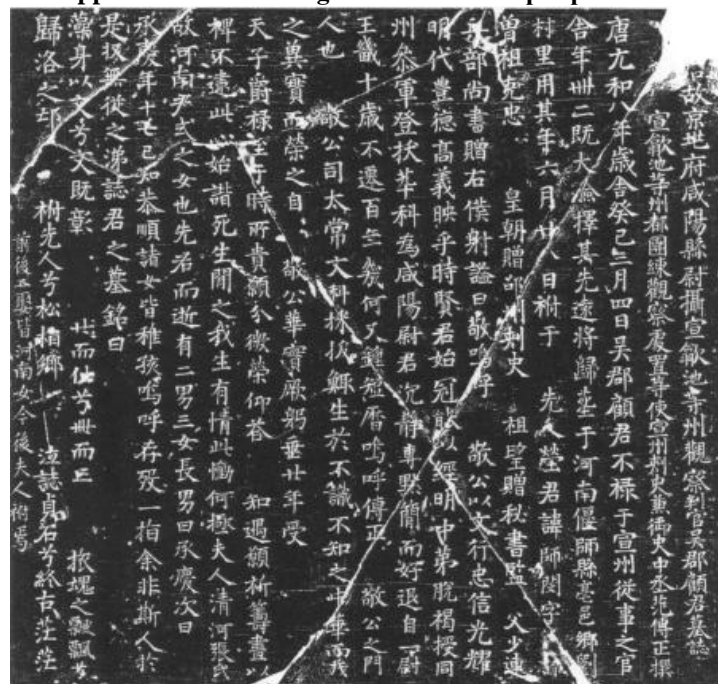 故京兆府咸陽縣尉攝宣歙池等州觀察判官吳郡顧君墓誌
宣歙池等州都團練觀察處置等使宣州刺史兼御史中丞范傳正撰
唐元和八年歲舍癸巳三月四日吳郡顧君不祿于宣州從事之官
舍年卌二既大斂擇其先遠將歸葬于河南偃師縣亳邑鄉
村里用其年六月廿八日祔于 先人塋君諱師閔字
曾祖克忠 皇朝贈 州刺史 祖望贈秘書監 父少連
部尚書贈右僕射謚曰敬嗚呼 敬公以文行忠信光耀
明代豐德高義映乎時賢君始冠能以經明中第脫褐授同
州參軍登拔萃科為咸陽尉君沉靜專默簡而好退自一尉
王畿十歲不遷百年幾何又鍾短曆嗚呼傳正 敬公之門
人也 敬公司太常文科採拔鯫生於不識不知之中華而我
之莫實而榮之自 敬公華實厥躬垂廿年受
天子爵祿至于時所貴願分微榮仰答 知遇顧析籌畫以
裨不逮此心始諧死生間之我生有情此慟何極夫人清河張氏
故河南尹式之女也先君而逝有二男三女長男曰承慶次曰
承度年十七已知恭順諸女皆稚孩嗚呼存歿一指余非斯人於
是收無從之涕誌君之墓銘曰
藻身以文兮文既彰 廿而仕兮卌而亡 魂之飄飄兮
歸洛之邙 祔先人兮松柏鄉 泣誌貞石兮終古茫茫
前後五娶皆河南女今後夫人祔焉